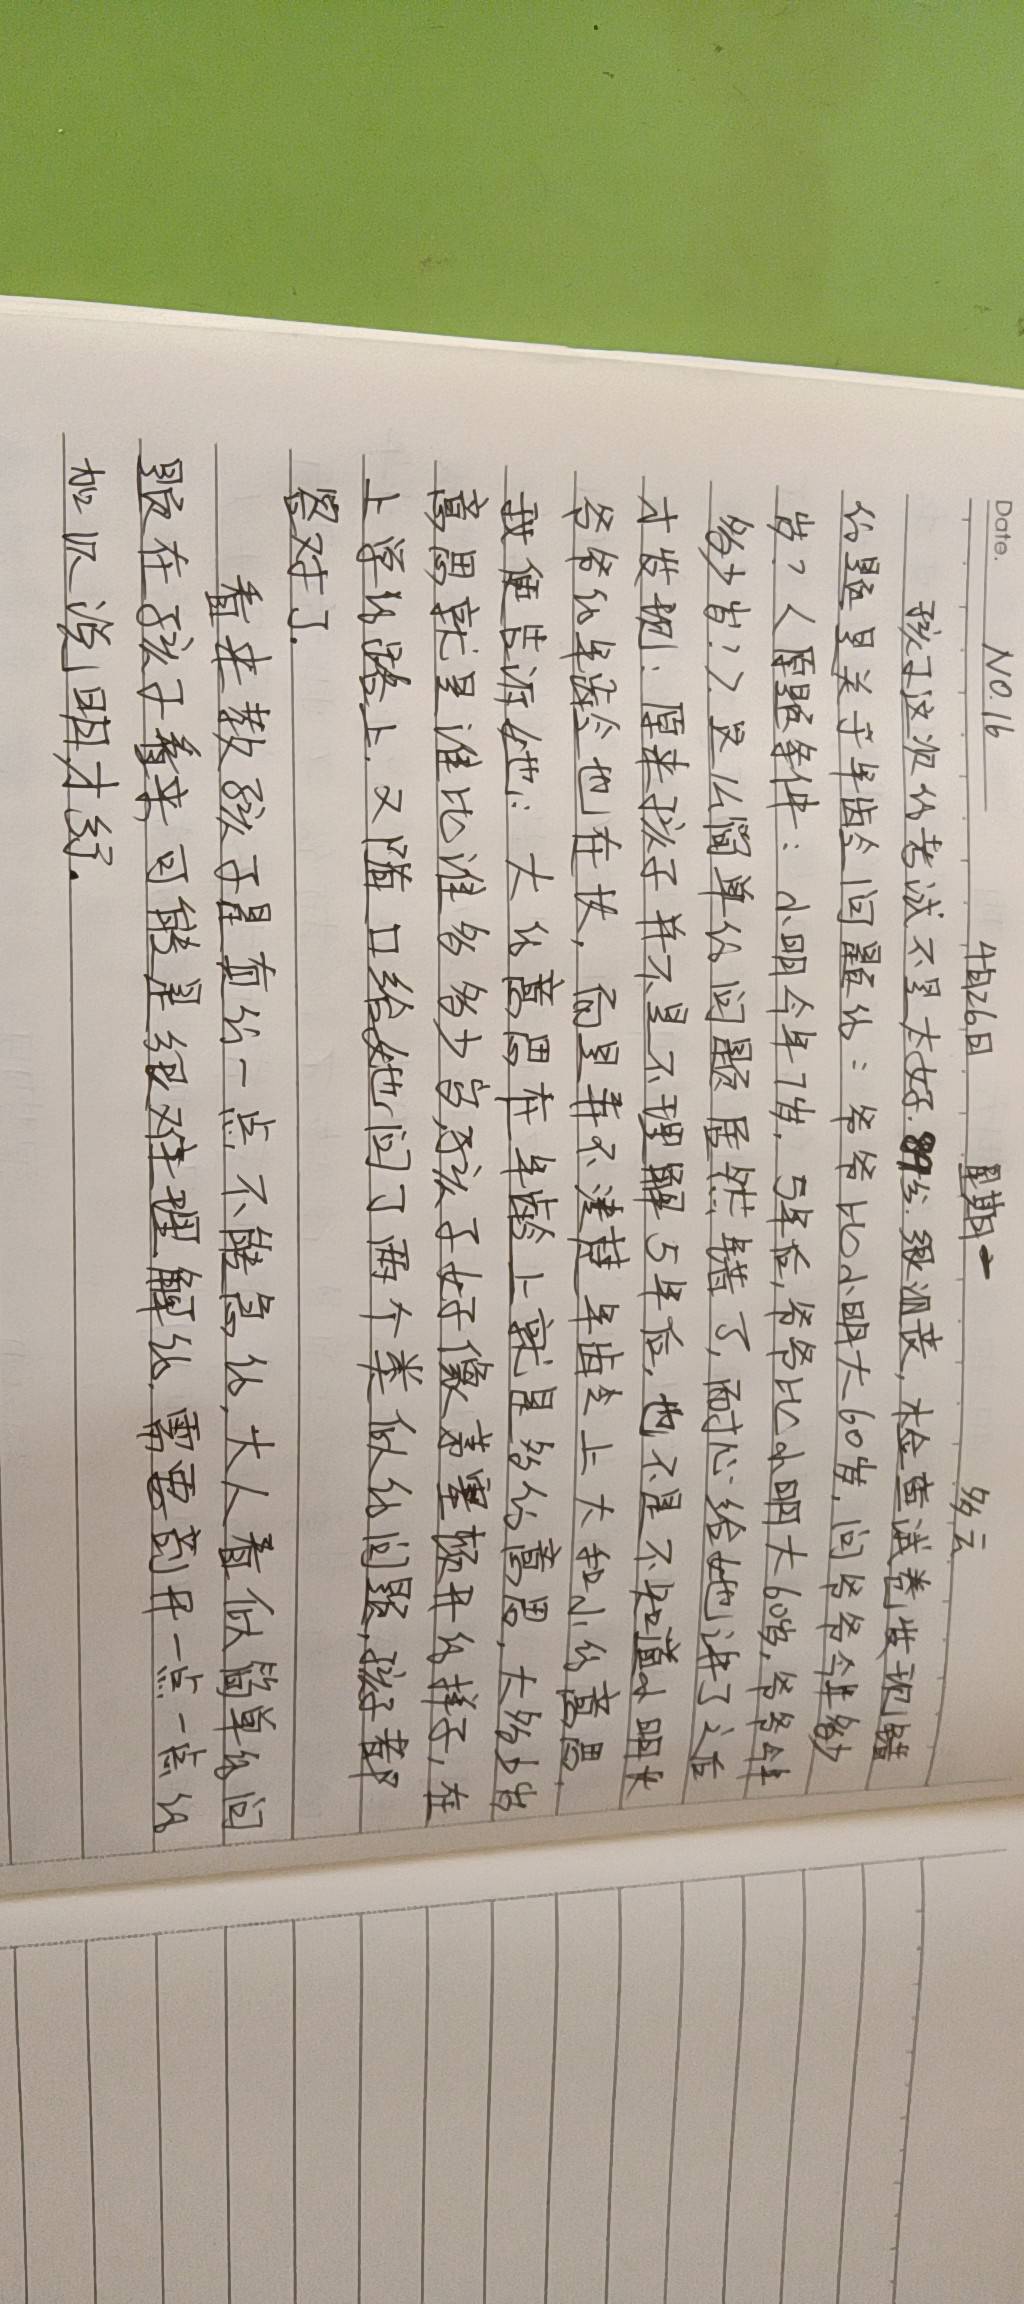 Date. NO.16
4月26日 星期一 多云
孩子这次的考试不是太好.89分.很沮丧,检查试卷发现错
的题是关于年龄问题的:爷爷比小明大60岁,问爷爷今年多少
岁?<原题条件:小明今年7岁.5年后,爷爷比小明大60岁,爷爷今年
多少岁?>.这么简单的问题居然错了,耐心给她讲了之后
才发现:原来孩子并不是不理解5年后,也不是不知道小明大
爷爷的年龄也在长,而是弄不清楚年龄上大和小的意思.
我便告诉她:大的意思在年龄上就是多的意思,大多少岁
意思就是谁比谁多多少岁孩子好像茅塞顿开的样子,在
上学的路上.又随口给她问了两个类似的问题,孩子都
答对了.
看来教孩子是真的一点不能急的,大人看似简单的问
题在孩子看来,可能是很难理解的.需要剖开一点一点的
加以说明才好.